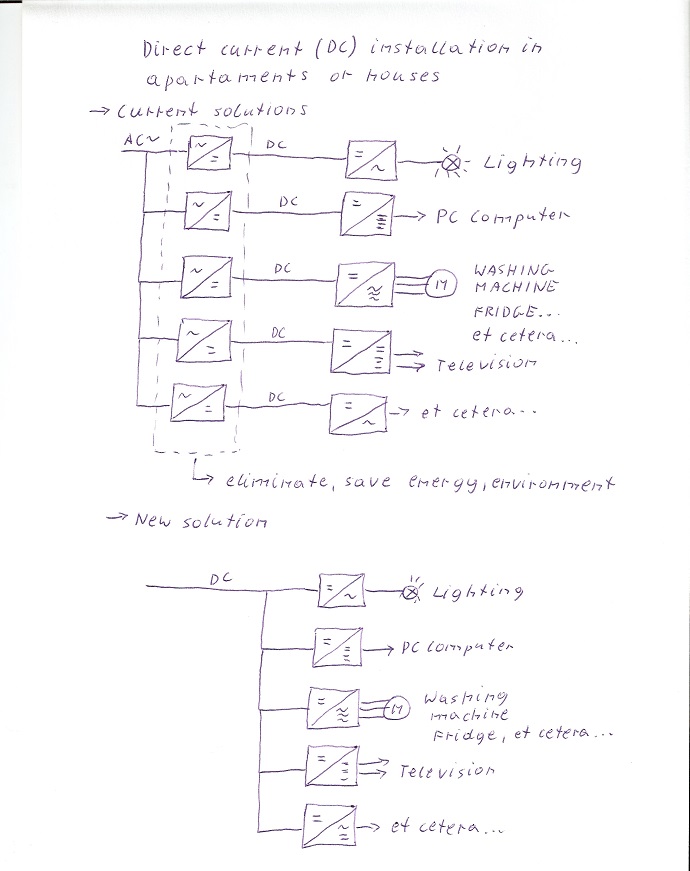 Direct current (DC) installation in
apartaments or houses
→ Current solutions
AC~
DC
Lighting
DC
PC Computer
DC
M
WASHING
MACHINE
FRIDGE...
et cetera...
DC
Television
DC
et cetera...
eliminate, save energy, environment
→ New solution
DC
Lighting
PC Computer
M
Washing
machine
Fridge, et cetera...
Television
et cetera...